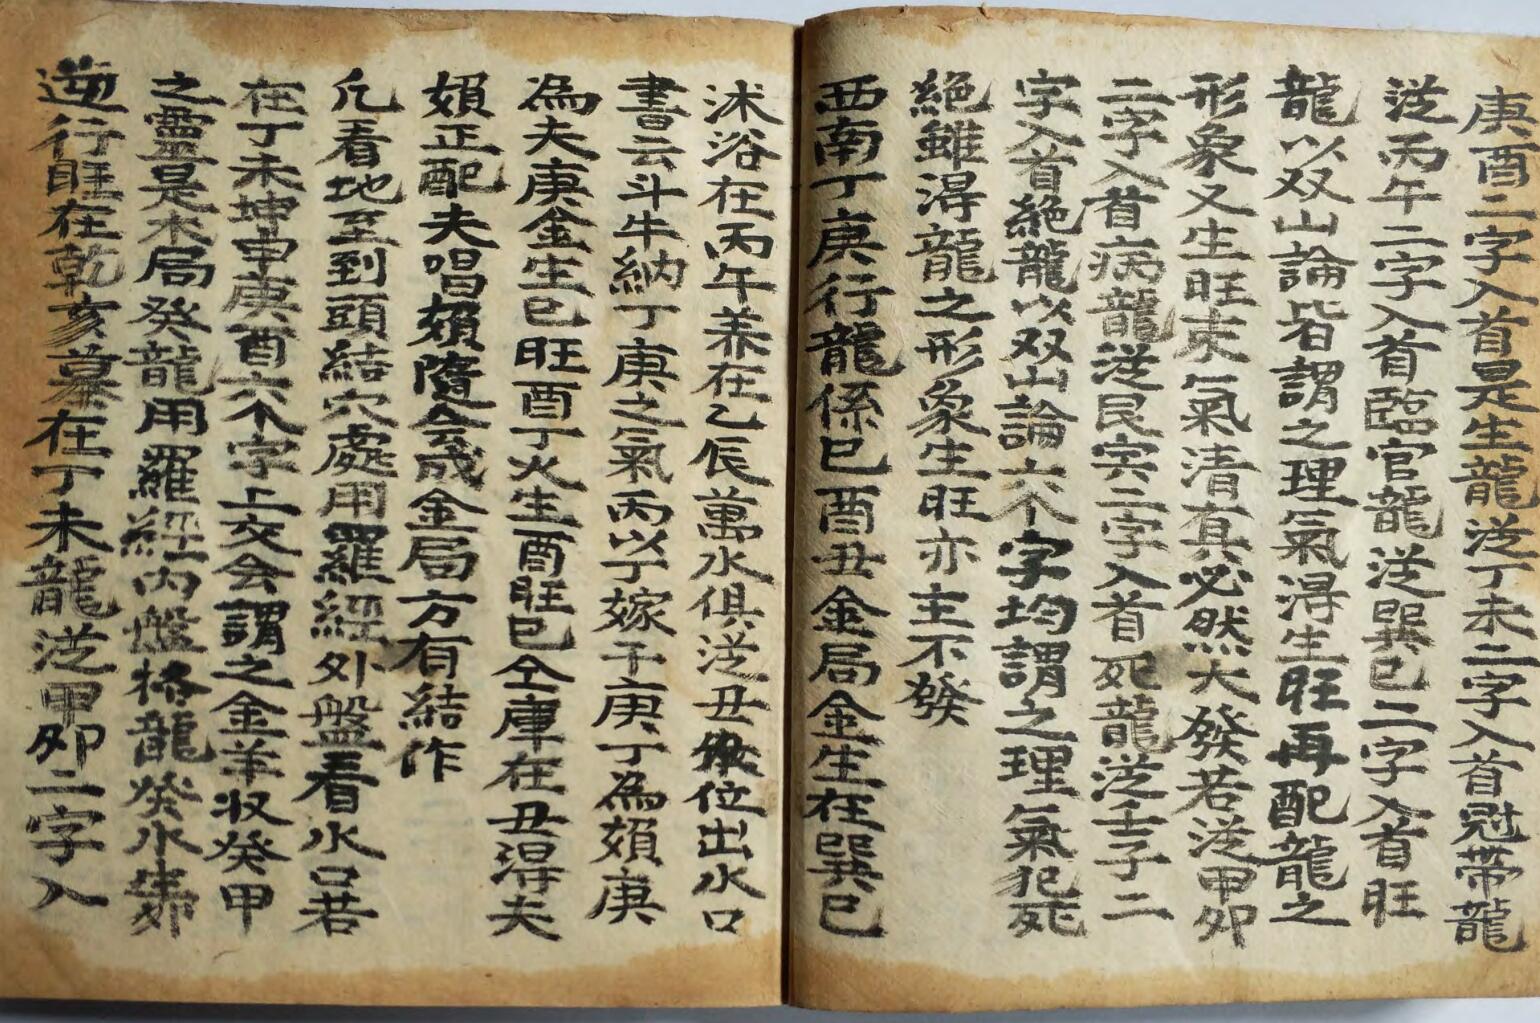 庚酉二字入首是生龍從丁未二字入首冠帶龍
從丙午二字入首臨官龍從巽巳二字入首旺
龍以双山論皆謂之理氣淂生旺再配龍之
形象又生旺束氣清真必然大發若從甲卯
二字入首病龍從艮寅二字入首死龍從壬子二
字入首絕龍以双山論六个字均謂之理氣犯死
絕雖淂龍之形象生旺亦主不發
西南丁庚行龍係巳酉丑金局金生在巽巳
沐浴在丙午养在乙辰萬水俱從丑位出水口
書云斗牛納丁庚之氣丙以丁嫁于庚丁為婦庚
為夫庚金生巳旺酉丁火生酉旺巳仝庫在丑淂夫
婦正配夫唱婦隨会成金局方有結作
凢看地至到頭結穴處用羅經外盤看水口若
在丁未坤申庚酉六个字上交会謂之金羊收癸甲
之靈是木局癸龍用羅經內盤格龍癸水生卯
逆行旺在乾亥墓在丁未龍從甲卯二字入